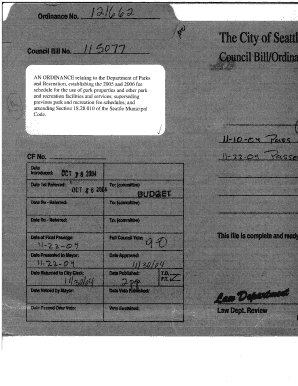 Ordinance No. 121662
The City of Seattl
Council Bill No. 115077
Council Bill/Ordina
AN ORDINANCE relating to the Department of Parks
and Recreation, establishing the 2005 and 2006 fee
schedule for the use of park properties and other park
and recreation facilities and services; superseding
previous park and recreation fee schedules; and
amending Section 18.28.010 of the Seattle Municipal
Code.
11-10-04 Pass
11-22-04 Passe
CF No.
Date Introduced: OCT 26 2004
Date 1st Referred: OCT 26 2004
To: (committee) BUDGET
Date Re - Referred:
To: (committee)
Date Re - Referred:
To: (committee)
Date of Final Passage: 11-22-04
Full Council Vote: 9-0
This file is complete and ready
Date Presented to Mayor: 11-22-04
Date Approved: 11/30/04
Date Returned to City Clerk: 11/30/04
Date Published: 2pp
T.O.
F.T.
Date Vetoed by Mayor:
Date Veto Published:
Law Department
Law Dept. Review
Date Passed Over Veto:
Veto Sustained: